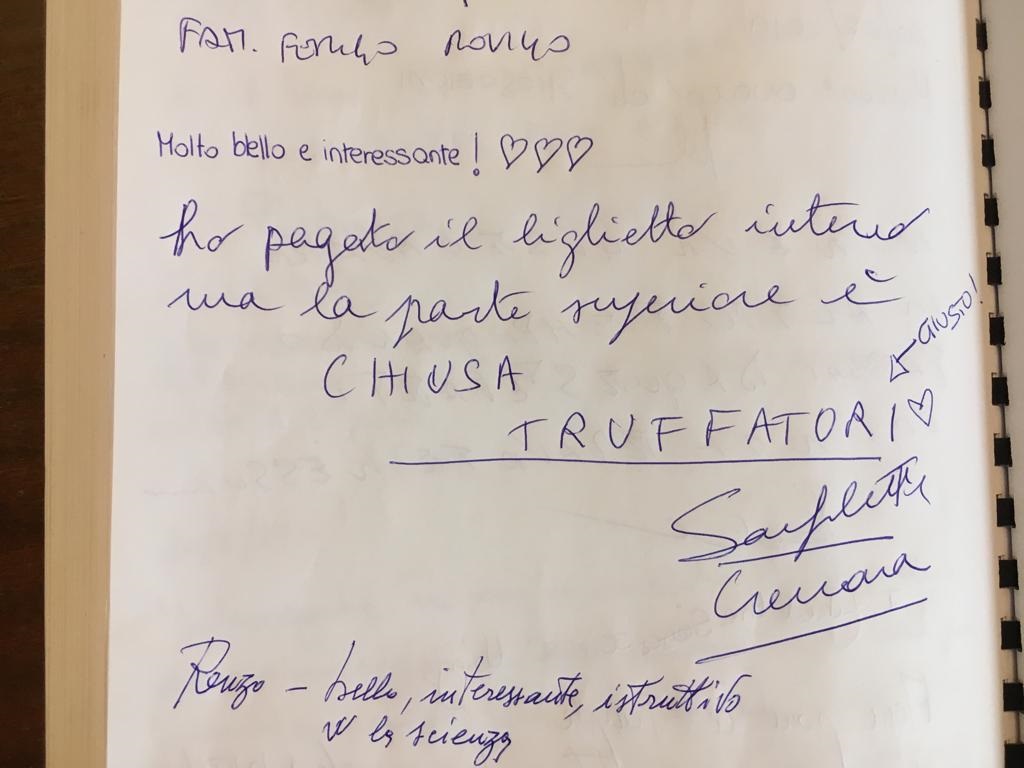 FAM.
Molto bello e interessante! ♡♡♡
ho pagato il biglietto intero
ma la parte superiore è
CHIUSA
GIUSTO!
TRUFFATORI ♡
Cremona
Renzo - bello, interessante, istruttivo
W la scienza